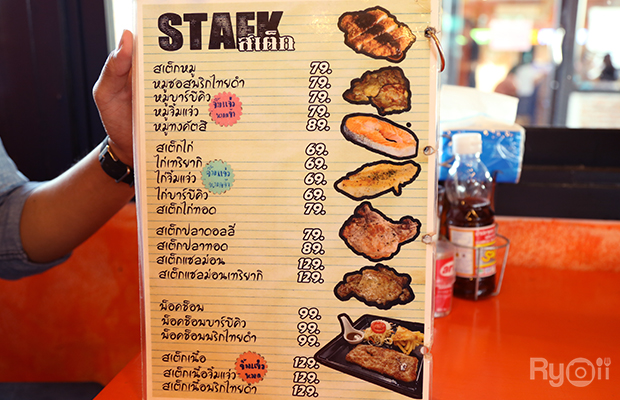 STAEK
สเต็ก
สเต็กหมู 79.
หมูซอสพริกไทยดำ 79.
หมูบาร์บีคิว 79.
หมูจิ้มแจ่ว 79.
หมูทงคัตสึ 89.
จิ้มแจ่ว
สเต็กไก่ 69.
ไก่เทริยากิ 69.
ไก่จิ้มแจ่ว 69.
ไก่บาร์บีคิว 69.
สเต็กไก่ทอด 79.
จิ้มแจ่ว
สเต็กปลาดอลลี่ 79.
สเต็กปลาทอด 89.
สเต็กแซลม่อน 129.
สเต็กแซลม่อนเทริยากิ 129.
พ็อคช็อพ 99.
พ็อคช็อพบาร์บีคิว 99.
พ็อคช็อพพริกไทยดำ 99.
สเต็กเนื้อ 129.
สเต็กเนื้อจิ้มแจ่ว 129.
สเต็กเนื้อพริกไทยดำ 129.
จิ้มแจ่ว
Ryoii